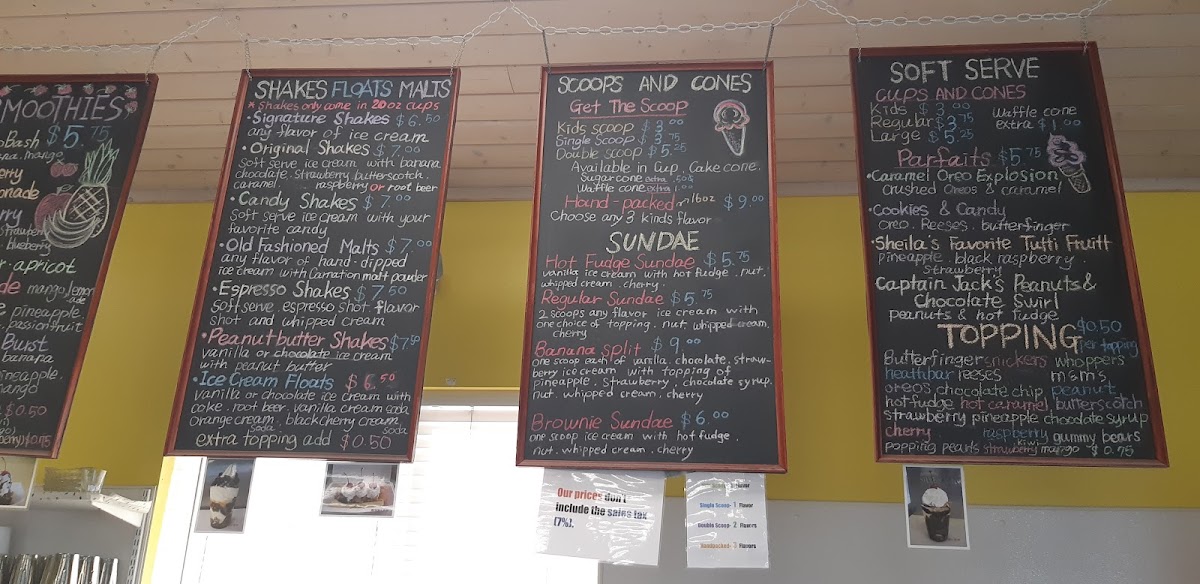 SMOOTHIES
Bash $5.75
mango
erry
onade
erry
strawberry
blueberry
apricot
de mango, lemonade
pineapple
passionfruit
Burst
banana
pineapple
mango
$0.50
$0.75
SHAKES FLOATS MALTS
* Shakes only come in 20oz cups
• Signature Shakes $6.50
any flavor of ice cream
• Original Shakes $7.00
Soft serve ice cream with banana
chocolate. Strawberry butterscotch.
caramel. raspberry or root beer
• Candy Shakes $7.00
Soft serve ice cream with your
favorite candy
• Old Fashioned Malts $7.00
any flavor of hand-dipped
ice cream with Carnation malt powder
• Espresso Shakes $7.50
Soft serve. espresso shot. flavor
shot and whipped cream
• Peanut butter Shakes $7.50
vanilla or chocolate ice cream
with peanut butter
• Ice Cream Floats $6.50
Vanilla or chocolate ice cream with
coke. root beer. vanilla cream soda
orange cream. soda black cherry cream. soda
extra topping add $0.50
SCOOPS AND CONES
Get The Scoop
Kids scoop $3.00
Single Scoop $3.75
Double scoop $5.25
Available in Cup. Cake cone.
Sugar cone extra .50¢
Waffle cone extra 1.00
Hand-packed 16oz $9.00
Choose any 3 kinds flavor
SUNDAE
Hot Fudge Sundae $5.75
vanilla ice cream with hot fudge. nut.
whipped cream. cherry.
Regular Sundae $5.75
2 scoops any flavor ice cream with
one choice of topping. nut whipped cream.
cherry
Banana Split $9.00
one scoop each of vanilla. chocolate. straw-
berry ice cream with topping of
pineapple. strawberry. chocolate syrup.
nut. whipped cream. cherry
Brownie Sundae $6.00
one scoop ice cream with hot fudge.
nut. whipped cream. cherry
SOFT SERVE
CUPS AND CONES
Kids $3.00 Waffle cone
Regular $3.75 extra $1.00
Large $5.25
Parfaits $5.75
• Caramel Oreo Explosion
crushed Oreos & caramel
• Cookies & Candy
oreo. Reeses. butterfinger
• Sheila's Favorite Tutti Fruitt
pineapple. black raspberry.
strawberry
Captain Jack's Peanuts &
Chocolate Swirl
peanuts & hot fudge
TOPPING $0.50 per topping
Butterfinger snickers whoppers
heathbar reeses m&m's
oreos chocolate chip peanut
hot fudge hot caramel butterscotch
strawberry pineapple chocolate syrup
cherry raspberry gummy bears
popping pearls strawberry kiwi mango $0.75
Our prices don't
include the sales tax
(7%).
Flavor
Single Scoop- 1 Flavor
Double Scoop- 2 Flavors
Handpacked- 3 Flavors